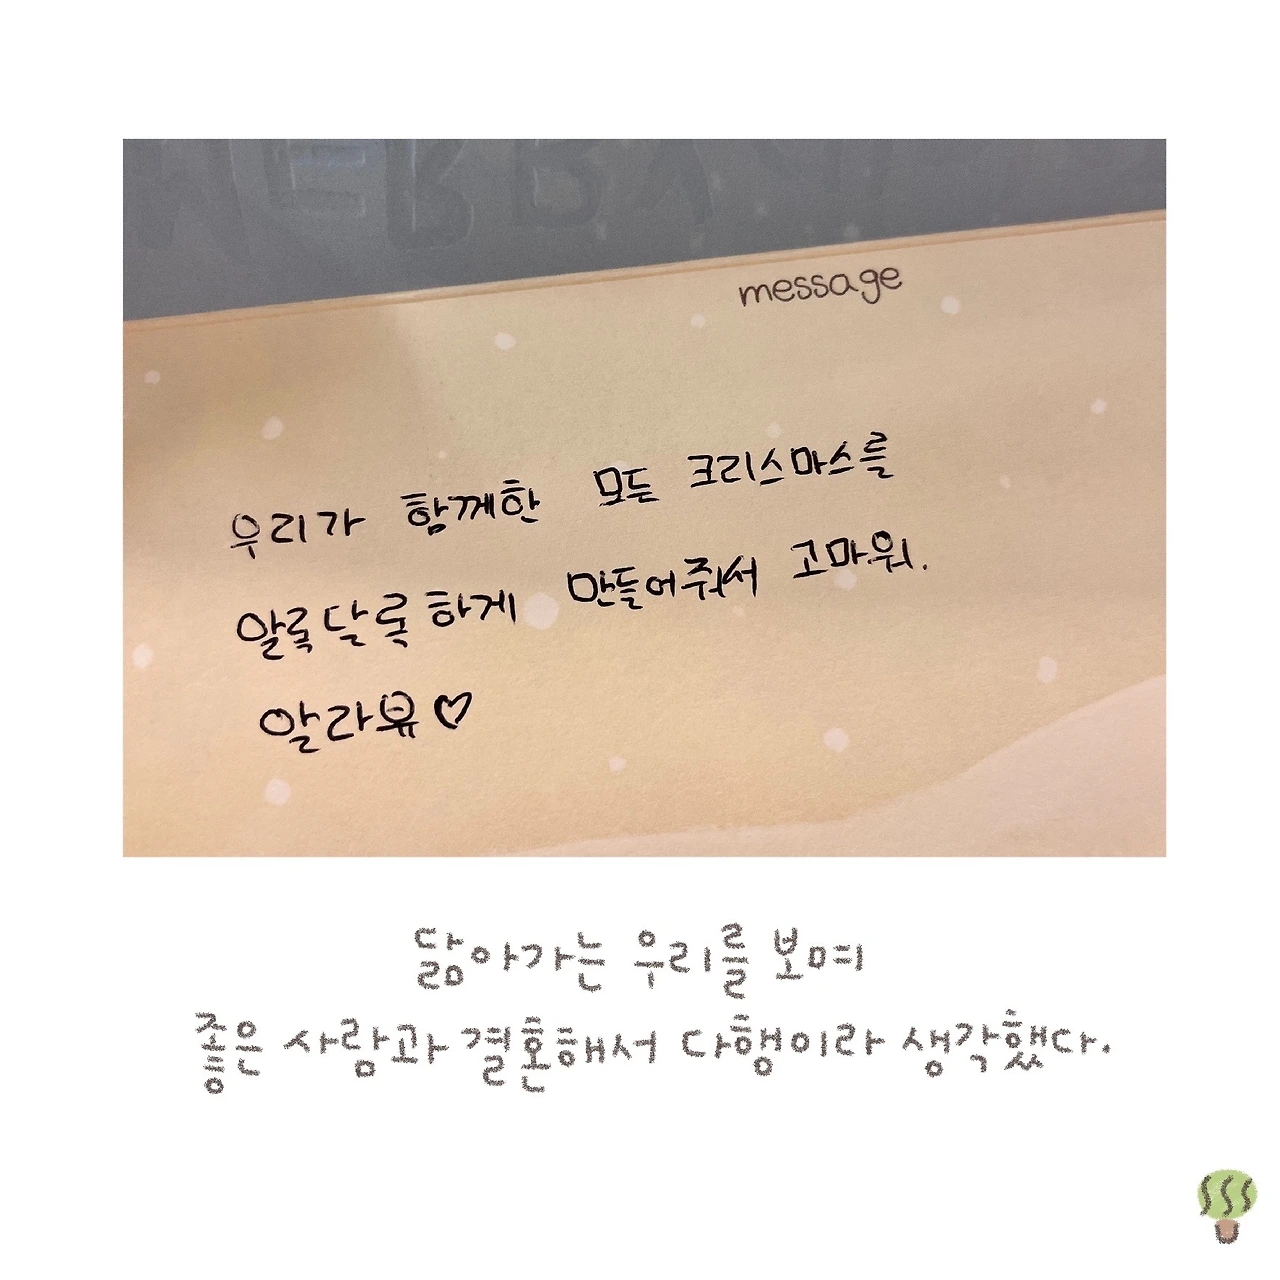 message
우리가 함께한 모든 크리스마스를
알록달록하게 만들어줘서 고마워.
알라뷰♡
닮아가는 우리를 보며
좋은 사람과 결혼해서 다행이라 생각했다.